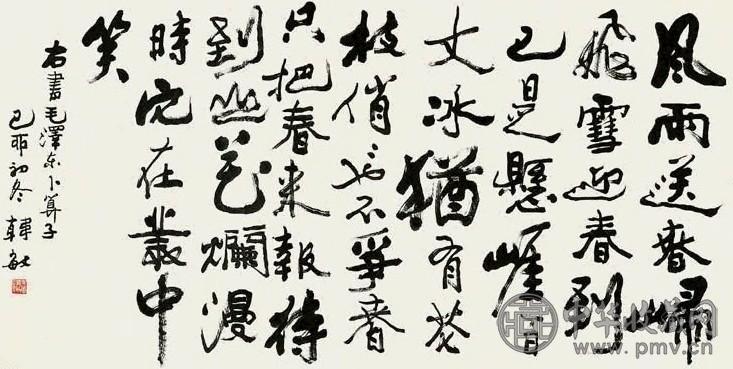 風雨送春歸
飛雪迎春到
已是懸崖百
丈冰猶有花
枝俏也不爭春
只把春来報待
到山花爛漫
時它在叢中
笑
右書毛澤东卜算子
己卯初冬 韓敏
中华收藏网
www.pmv.cn